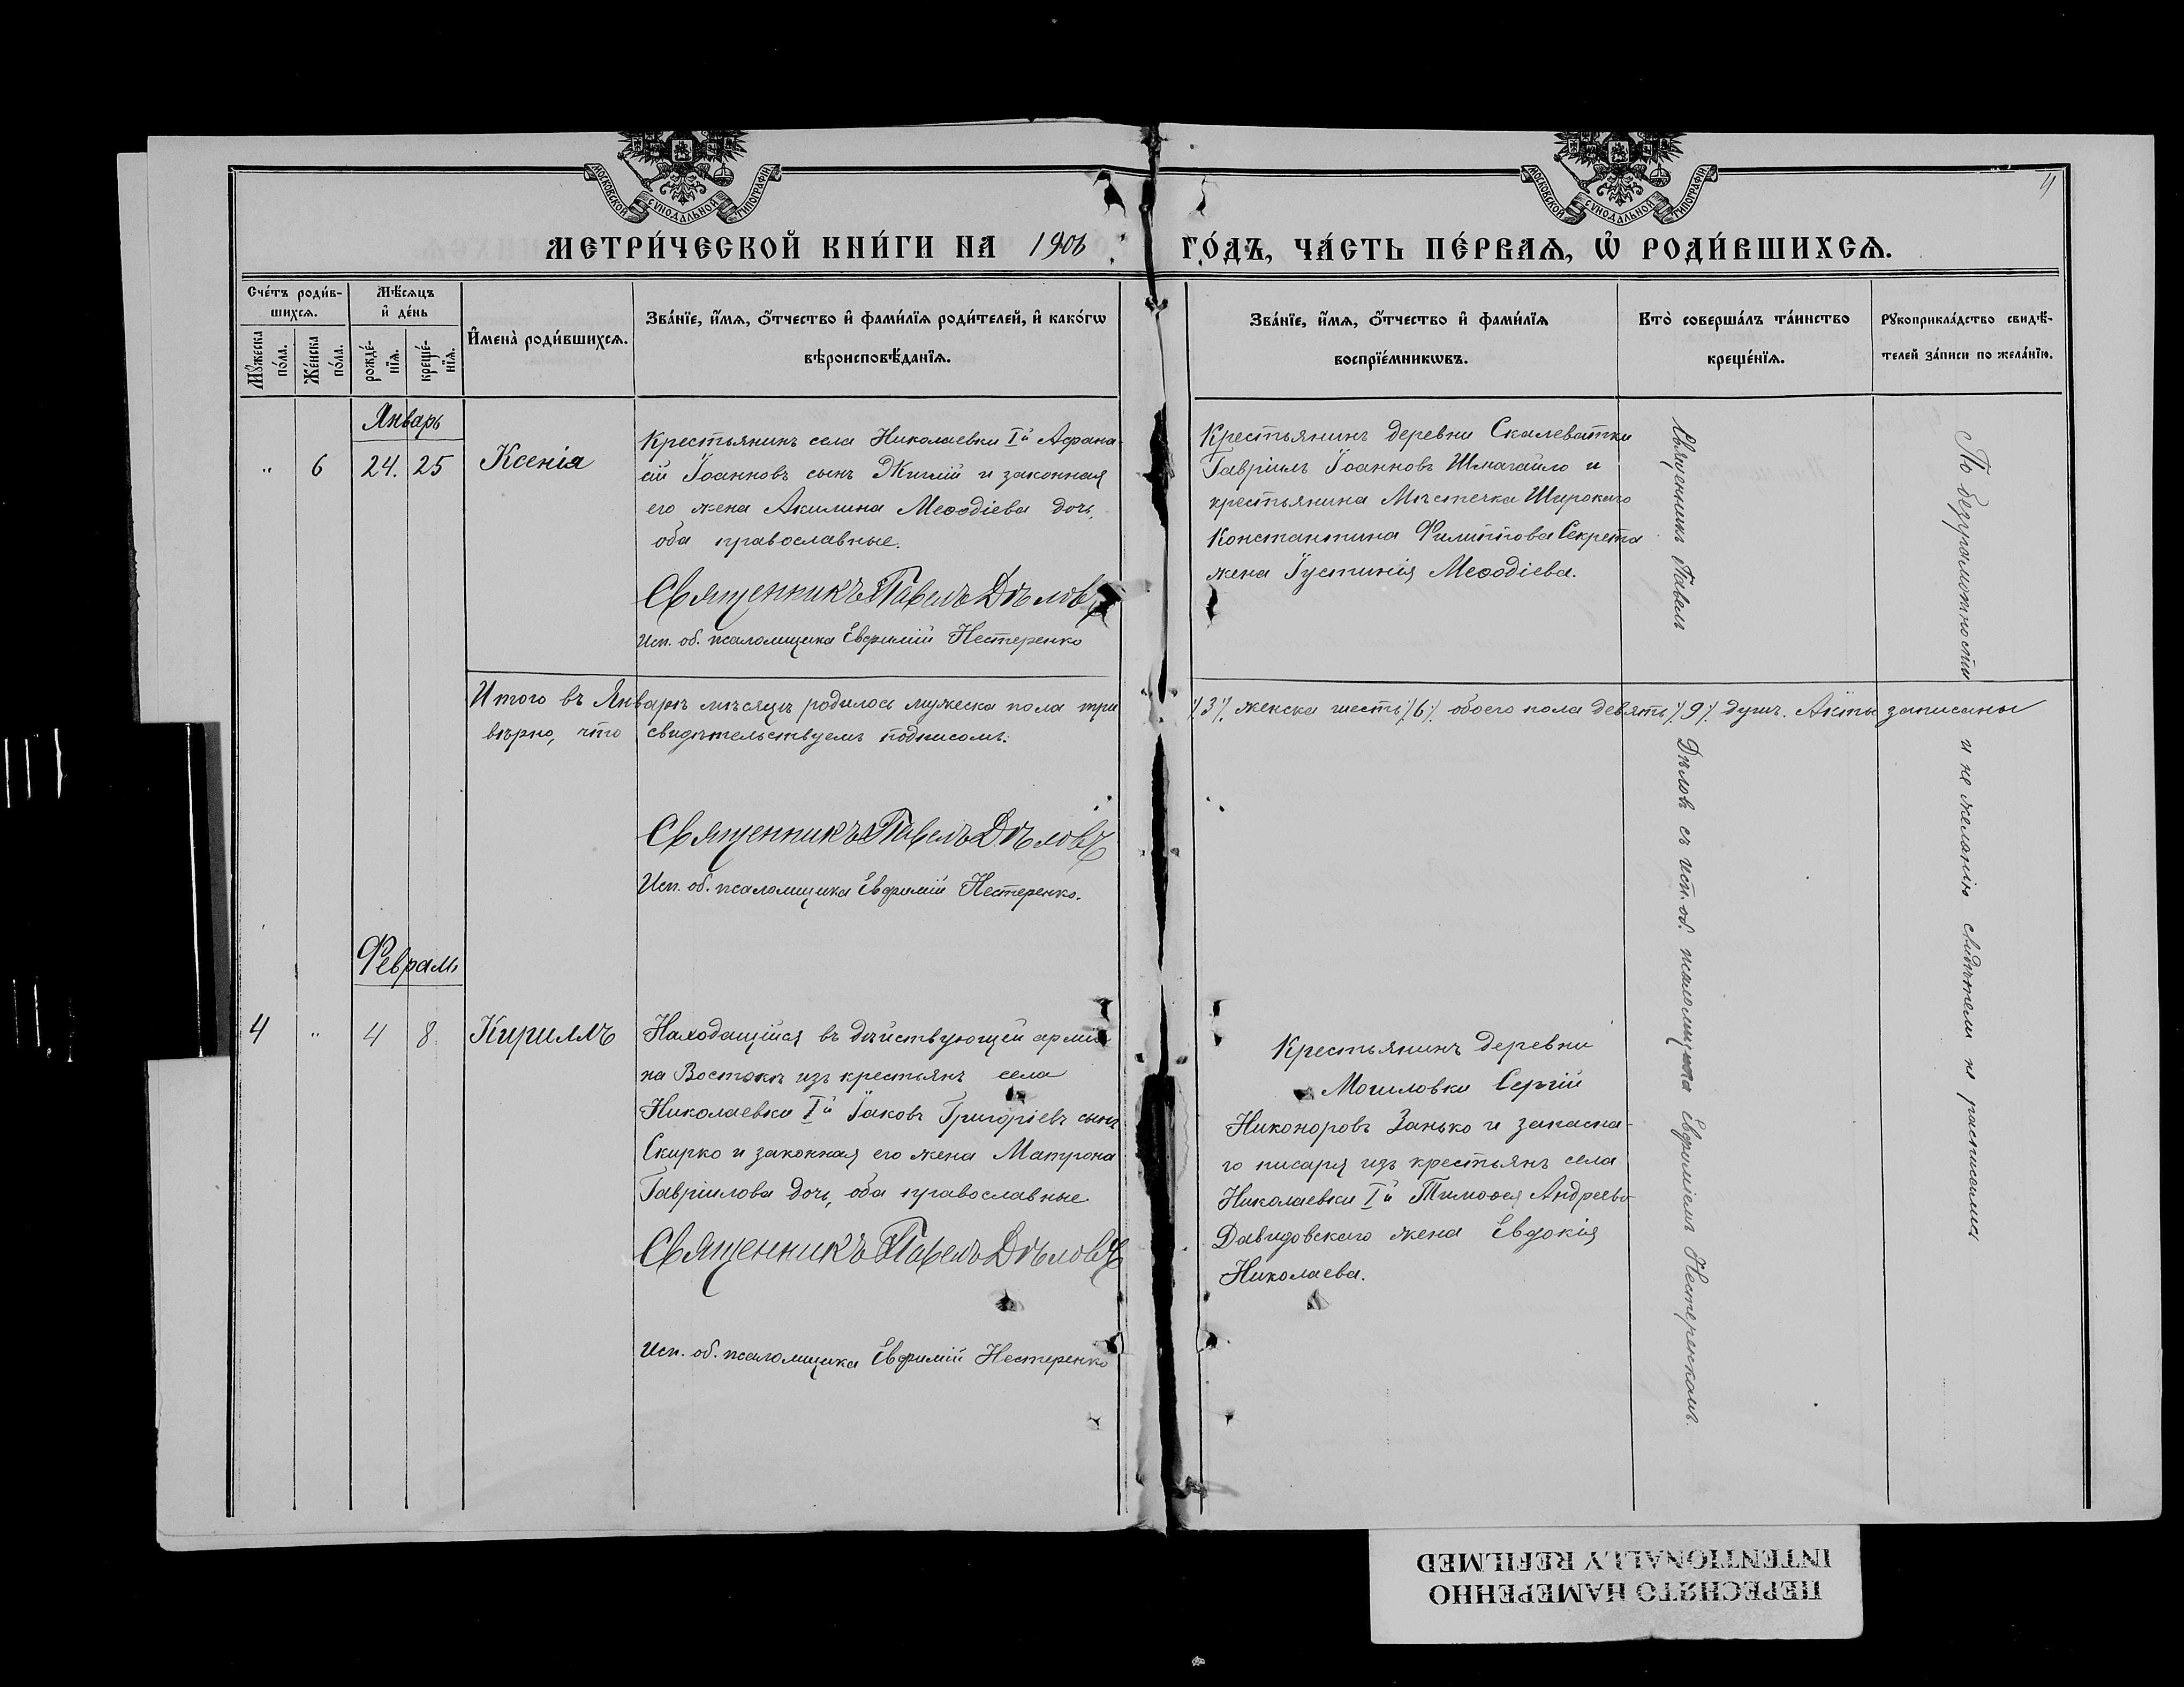 МОСКОВСКОЙ СѴНОДАЛЬНОЙ ТИПОГРАФІИ
МОСКОВСКОЙ СѴНОДАЛЬНОЙ ТИПОГРАФІИ
4
МЕТРИ́ЧЕСКОЙ КНИ́ГИ НА 1906
ГО́ДЪ, ЧА́СТЬ ПЕ́РВАѦ, Ѡ РОДИ́ВШИХСѦ.
Сче́тъ роди́в-
шихсѧ.
Мѣ́сѧцъ
и҆ де́нь
Мꙋ́жеска
по́ла.
Же́нска
по́ла.
рожде́-
нїѧ.
креще́-
нїѧ.
И҆мена̀ роди́вшихсѧ.
Зва́нїе, и҆́мѧ, ѻ҆́тчество и҆ фами́лїѧ роди́телей, и҆ како́гѡ
вѣроисповѣ́данїѧ.
Зва́нїе, и҆́мѧ, ѻ҆́тчество и҆ фами́лїѧ
воспрїе́мникѡвъ.
Кто̀ соверша́лъ та́инство
креще́нїѧ.
Рꙋкоприкла́дство свидѣ́-
телей за́писи по жела́нїю.
Январь
„ 6 24. 25 Ксенія
Крестьянинъ села Николаевки Iй Афана-
сій Іоанновъ сынъ Жилій и законная
его жена Акилина Меѳодіева дочь,
оба православные.
Священникъ Павелъ Дѣловъ
Исп. об. псаломщика Евфимій Нестеренко
Крестьянинъ деревни Скалеватки
Гавріилъ Іоанновъ Шмагайло и
крестьянина Мѣстечка Широкаго
Константина Филиппова Секрета
жена Іустинія Меѳодіева.
Итого въ Январѣ мѣсяцѣ родилось мужеска пола три /3/, женска шесть /6/, обоего пола девять /9/ душъ. Акты записаны
вѣрно, что свидѣтельствуемъ подписомъ:
Священникъ Павелъ Дѣловъ
Исп. об. псаломщика Евфимій Нестеренко.
Февраль
4 „ 4 8 Кириллъ
Находащійся въ дѣйствующей арміи
на Востокѣ изъ крестьянъ села
Николаевки Iй Іаковъ Григоріевъ сынъ
Скирко и законная его жена Матрона
Гавріилова дочь, оба православные
Священникъ Павелъ Дѣловъ
Исп. об. псаломщика Евфимій Нестеренко
Крестьянинъ деревни
Могиловки Сергій
Никоноровъ Занько и запасна-
го писаря изъ крестьянъ села
Николаевки Iй Тимоѳея Андреева
Давидовскаго жена Евдокія
Николаева.
Священникъ Павелъ Дѣловъ съ исп. об. псаломщика Евфиміемъ Нестеренкомъ.
По безграмотности и не желанію свидѣтели не расписались
ПЕРЕСНЯТО НАМЕРЕННО
INTENTIONALLY REFILMED